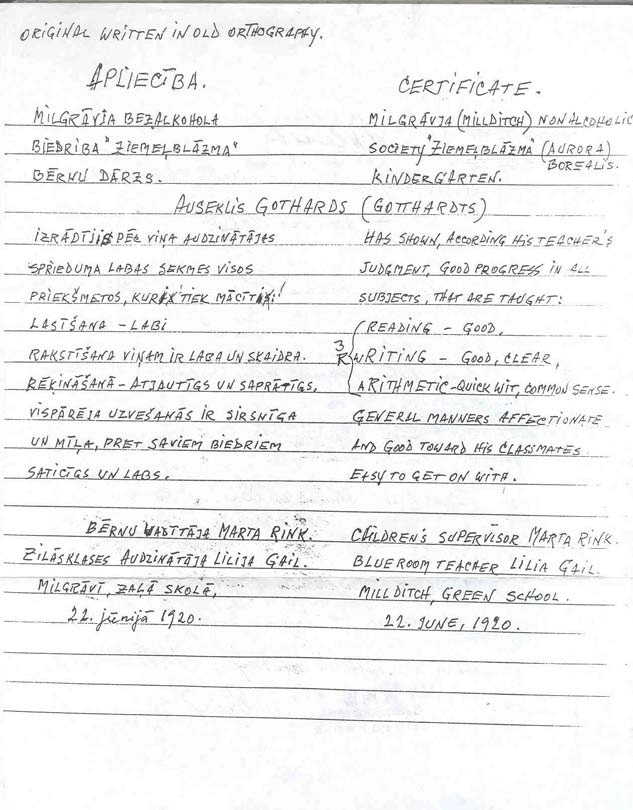 ORIGINAL WRITTEN IN OLD ORTHOGRAPAY.
APLIECĪBA. CERTIFICATE.
MILGRĀVJA BEZALKOHOLA MILGRĀVJA (MILLDITCH) NONALCOHOLIC
BIEDRĪBA "ZIEMEĻBLĀZMA" SOCIETY "ZIEMEĻBLĀZMA" (AURORA
BOREALIS.
BĒRNU DĀRZS. KINDERGARTEN.
AUSEKLIS GOTHARDS (GOTTHARDTS)
IZRĀDĪJIS PĒC VIŅA AUDZINĀTĀJAS HAS SHOWN, ACCORDING HIS TEACHER'S
SPRIEDUMA LABAS SEKMES VISOS JUDGMENT, GOOD PROGRESS IN ALL
PRIEKŠMETOS, KURI TIEK MĀCĪTI: SUBJECTS, THAT ARE TAUGHT:
LASĪŠANA - LABI READING - GOOD,
RAKSTĪŠANA VIŅAM IR LABA UN SKAIDRA. 3 R WRITING - GOOD, CLEAR,
RĒĶINĀŠANĀ - ATJAUTĪGS UN SAPRĀTĪGS. ARITHMETIC - QUICK WIT, COMMON SENSE.
VISPĀRĒJA UZVEŠANĀS IR SIRSNĪGA GENERAL MANNERS AFFECTIONATE
UN MĪĻA, PRET SAVIEM BIEDRIEM AND GOOD TOWARD HIS CLASSMATES
SATICĪGS UN LABS. EASY TO GET ON WITH.
BĒRNU VADĪTĀJA MARTA RINK. CHILDREN'S SUPERVISOR MARTA RINK.
ZILĀSKLASES AUDZINĀTĀJA LILIJA GAIL. BLUEROOM TEACHER LILIA GAIL.
MILGRĀVĪ, ZAĻĀ SKOLĀ, MILLDITCH, GREEN SCHOOL.
22. jūnijā 1920. 22. JUNE, 1920.